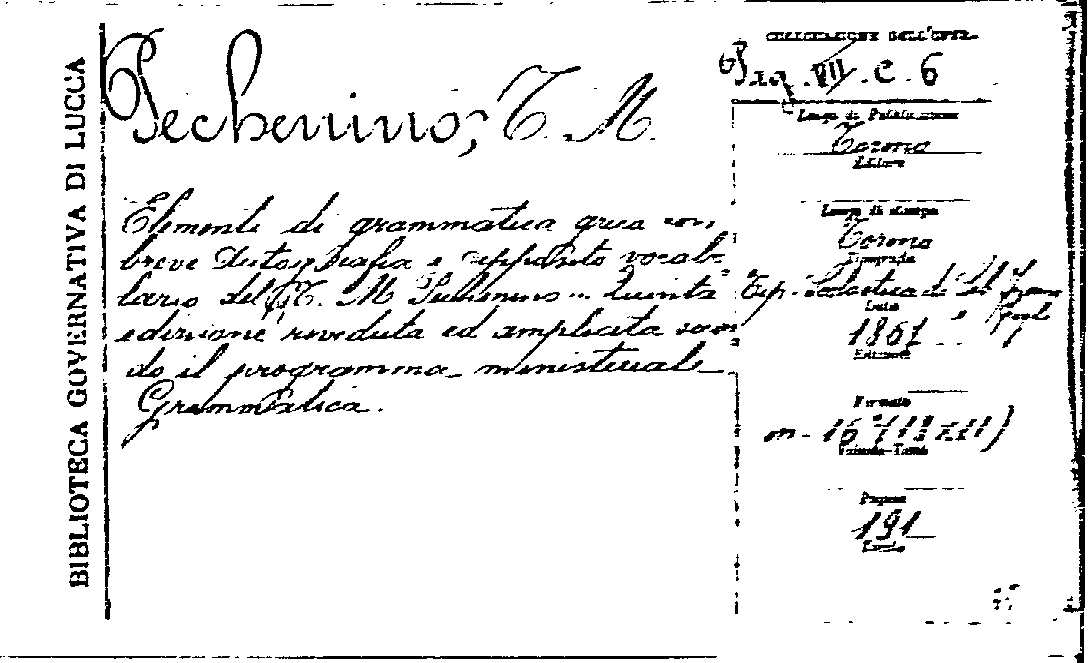 BIBLIOTECA GOVERNATIVA DI LUCCA
Pechenino, T. M.
Elementi di grammatica greca con
breve Crestografia e apposito vocabo-
lario del T. M. Pechenino... Quinta
edizione riveduta ed ampliata secon
do il programma ministeriale
Grammatica.
COLLOCAZIONE DELL'OPERA
VII. C. 6
Luogo di Pubblicazione
Torino
Editore
Luogo di stampa
Torino
Tipografia
Tip. Scolastica di Seb. Franco
e Figli
Data
1861
Edizione
Formato
in-16° (18x11)
Volumi-Tomi
Pagine
191